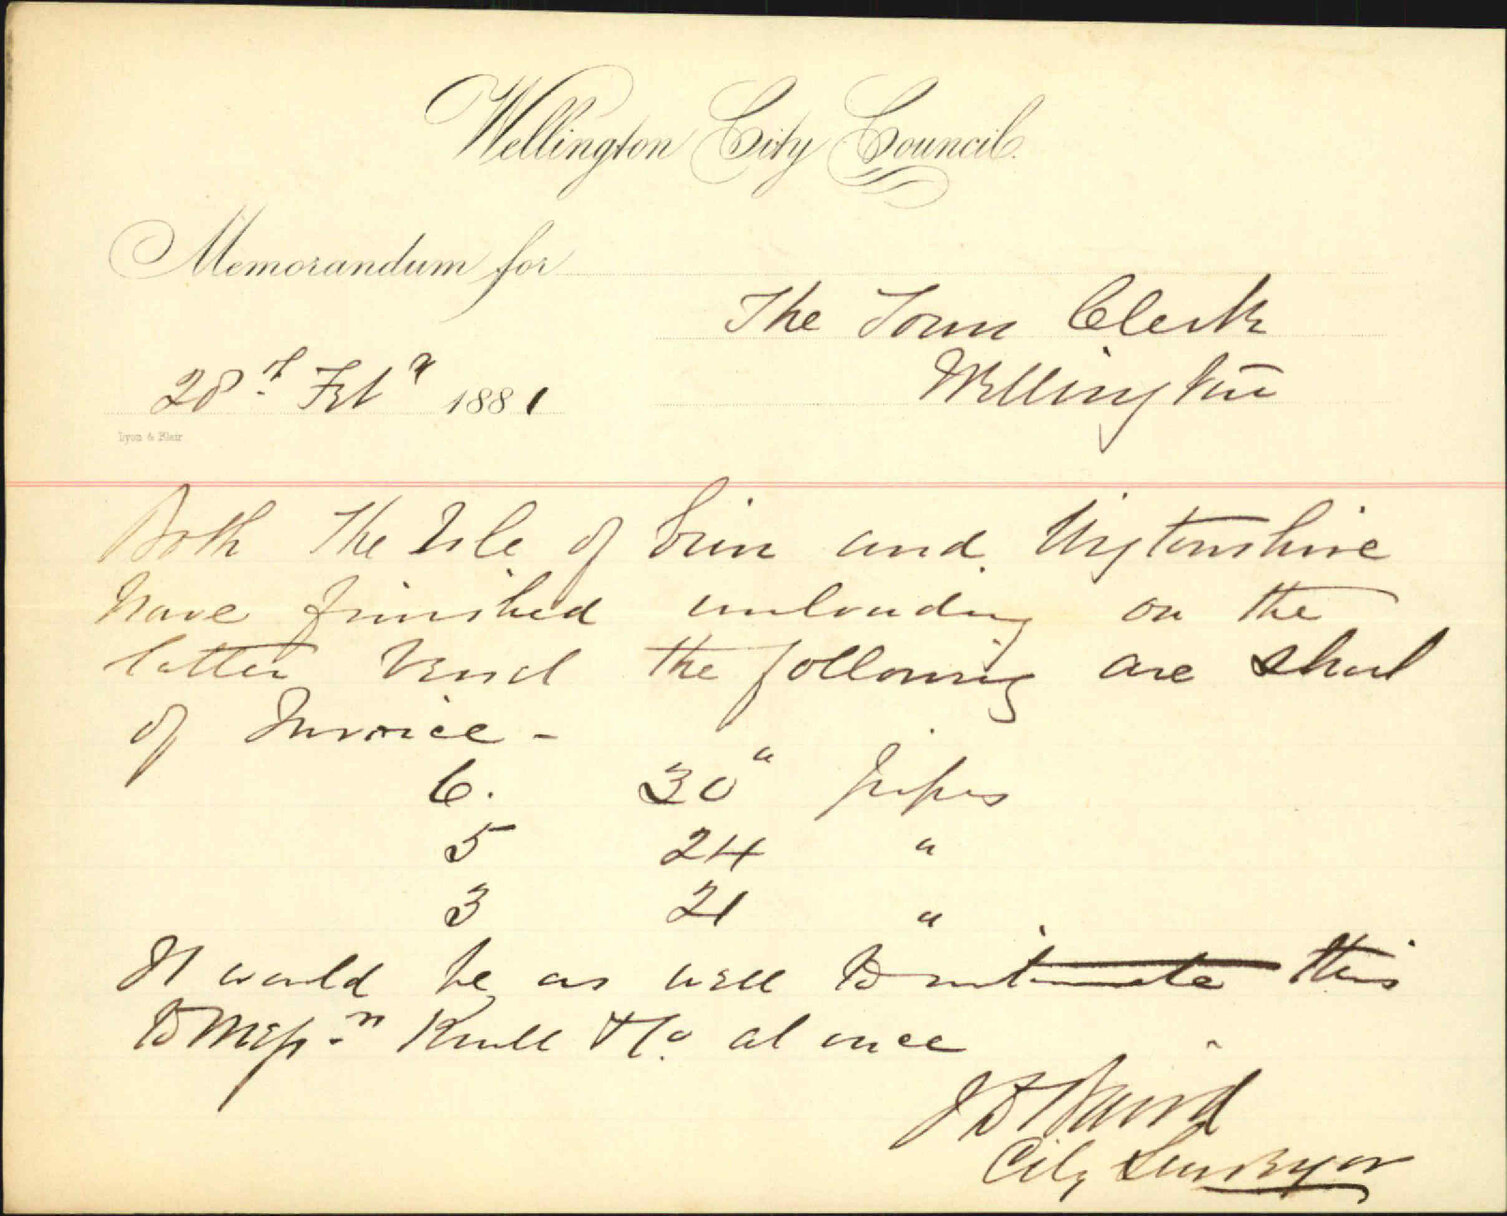 Wellington City Council.
Memorandum for
The Town Clerk
Wellington
28th Feby 1881
Lyon & Blair
Both the Isle of Erin and Wigtonshire
have finished unloading on the
latter vessel the following are short
of Invoice -
6. 30" pipes
5 24 "
3 21 "
It would be as well to intimate this
to Messrs Krull & Co. at once
J D Baird
City Surveyor